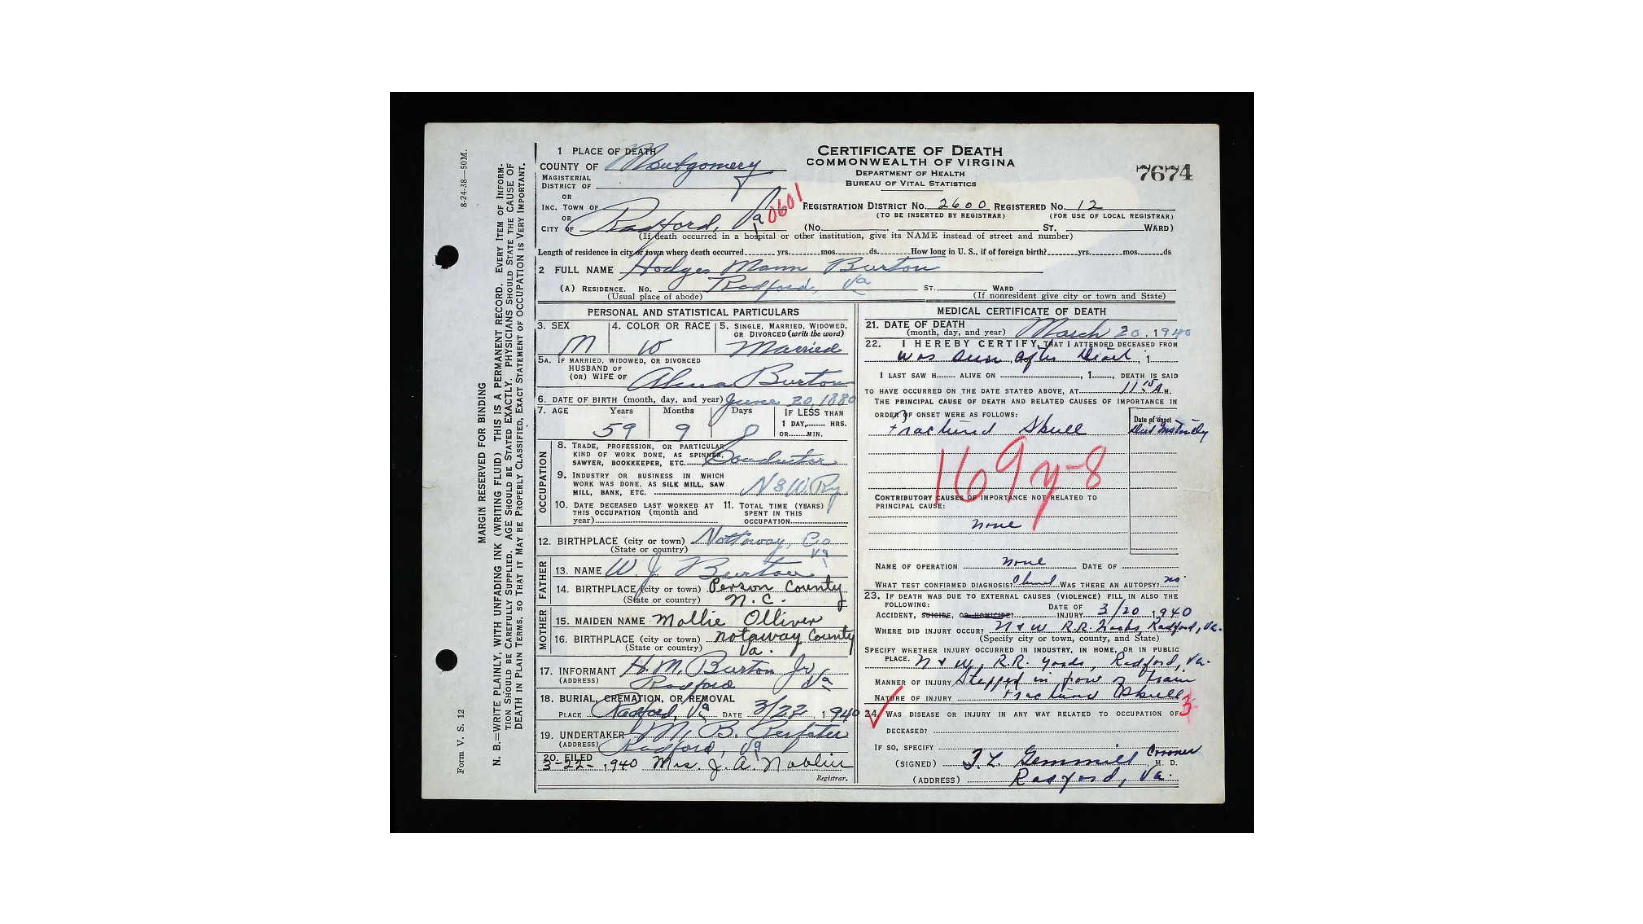 CERTIFICATE OF DEATH
COMMONWEALTH OF VIRGINA
DEPARTMENT OF HEALTH
BUREAU OF VITAL STATISTICS
7674
1 PLACE OF DEATH
COUNTY OF Montgomery
MAGISTERIAL
DISTRICT OF
OR
INC. TOWN OF
OR
CITY OF Radford, Va 0601
REGISTRATION DISTRICT NO. 2600 REGISTERED NO. 12
(TO BE INSERTED BY REGISTRAR) (FOR USE OF LOCAL REGISTRAR)
(No. ST. WARD)
(If death occurred in a hospital or other institution, give its NAME instead of street and number)
Length of residence in city or town where death occurred yrs. mos. ds. How long in U. S., if of foreign birth? yrs. mos. ds
2 FULL NAME Hodges Mann Burton
(A) RESIDENCE. NO. Radford, Va ST. WARD
(Usual place of abode) (If nonresident give city or town and State)
PERSONAL AND STATISTICAL PARTICULARS
3. SEX M
4. COLOR OR RACE W
5. SINGLE, MARRIED, WIDOWED, OR DIVORCED (write the word) Married
5A. IF MARRIED, WIDOWED, OR DIVORCED
HUSBAND OF
(OR) WIFE OF Burton
6. DATE OF BIRTH (month, day, and year) June 20, 1880
7. AGE Years Months Days IF LESS THAN
1 DAY, HRS.
OR MIN.
59 9 0
OCCUPATION
8. TRADE, PROFESSION, OR PARTICULAR
KIND OF WORK DONE, AS SPINNER,
SAWYER, BOOKKEEPER, ETC. Conductor
9. INDUSTRY OR BUSINESS IN WHICH
WORK WAS DONE, AS SILK MILL, SAW
MILL, BANK, ETC. N & W Ry
10. DATE DECEASED LAST WORKED AT
THIS OCCUPATION (month and
year)
11. TOTAL TIME (YEARS)
SPENT IN THIS
OCCUPATION
12. BIRTHPLACE (city or town) Nottoway, Co
(State or country) Va
FATHER
13. NAME W. J. Burton
14. BIRTHPLACE (city or town) Person County
(State or country) N.C.
MOTHER
15. MAIDEN NAME Mollie Olliver
16. BIRTHPLACE (city or town) Notaway County
(State or country) Va.
17. INFORMANT H. M. Burton Jr.
(ADDRESS) Radford Va
18. BURIAL, CREMATION, OR REMOVAL
PLACE Radford, Va DATE 3/22, 1940
19. UNDERTAKER M. B.
(ADDRESS) Radford, Va
20. FILED
3-22-, 1940 Mrs. J. A. Noblin
Registrar.
MEDICAL CERTIFICATE OF DEATH
21. DATE OF DEATH
(month, day, and year) March 20, 1940
22. I HEREBY CERTIFY, THAT I ATTENDED DECEASED FROM
was seen after Death, 1
I LAST SAW H ALIVE ON , 1 , DEATH IS SAID
TO HAVE OCCURRED ON THE DATE STATED ABOVE, AT 11 15 A M.
THE PRINCIPAL CAUSE OF DEATH AND RELATED CAUSES OF IMPORTANCE IN
ORDER OF ONSET WERE AS FOLLOWS:
Date of onset
Fractured Skull
169y-8
CONTRIBUTORY CAUSES OF IMPORTANCE NOT RELATED TO
PRINCIPAL CAUSE:
none
NAME OF OPERATION none DATE OF
WHAT TEST CONFIRMED DIAGNOSIS? WAS THERE AN AUTOPSY? no
23. IF DEATH WAS DUE TO EXTERNAL CAUSES (VIOLENCE) FILL IN ALSO THE
FOLLOWING:
ACCIDENT, SUICIDE, OR HOMICIDE? DATE OF INJURY 3/20, 1940
WHERE DID INJURY OCCUR? N & W R.R. Radford, Va.
(Specify city or town, county, and State)
SPECIFY WHETHER INJURY OCCURRED IN INDUSTRY, IN HOME, OR IN PUBLIC
PLACE. N & W, R.R. yards, Radford, Va.
MANNER OF INJURY Stepped in train
NATURE OF INJURY Fractured Skull
24. WAS DISEASE OR INJURY IN ANY WAY RELATED TO OCCUPATION OF 3
DECEASED?
IF SO, SPECIFY
(SIGNED) Gemmill Coroner M. D.
(ADDRESS) Radford, Va.
MARGIN RESERVED FOR BINDING
N. B.—WRITE PLAINLY, WITH UNFADING INK (WRITING FLUID) THIS IS A PERMANENT RECORD. EVERY ITEM OF INFORM-
TION SHOULD BE CAREFULLY SUPPLIED. AGE SHOULD BE STATED EXACTLY. PHYSICIANS SHOULD STATE THE CAUSE OF
DEATH IN PLAIN TERMS, SO THAT IT MAY BE PROPERLY CLASSIFIED. EXACT STATEMENT OF OCCUPATION IS VERY IMPORTANT.
Form V. S. 12
8-24-38—50M.